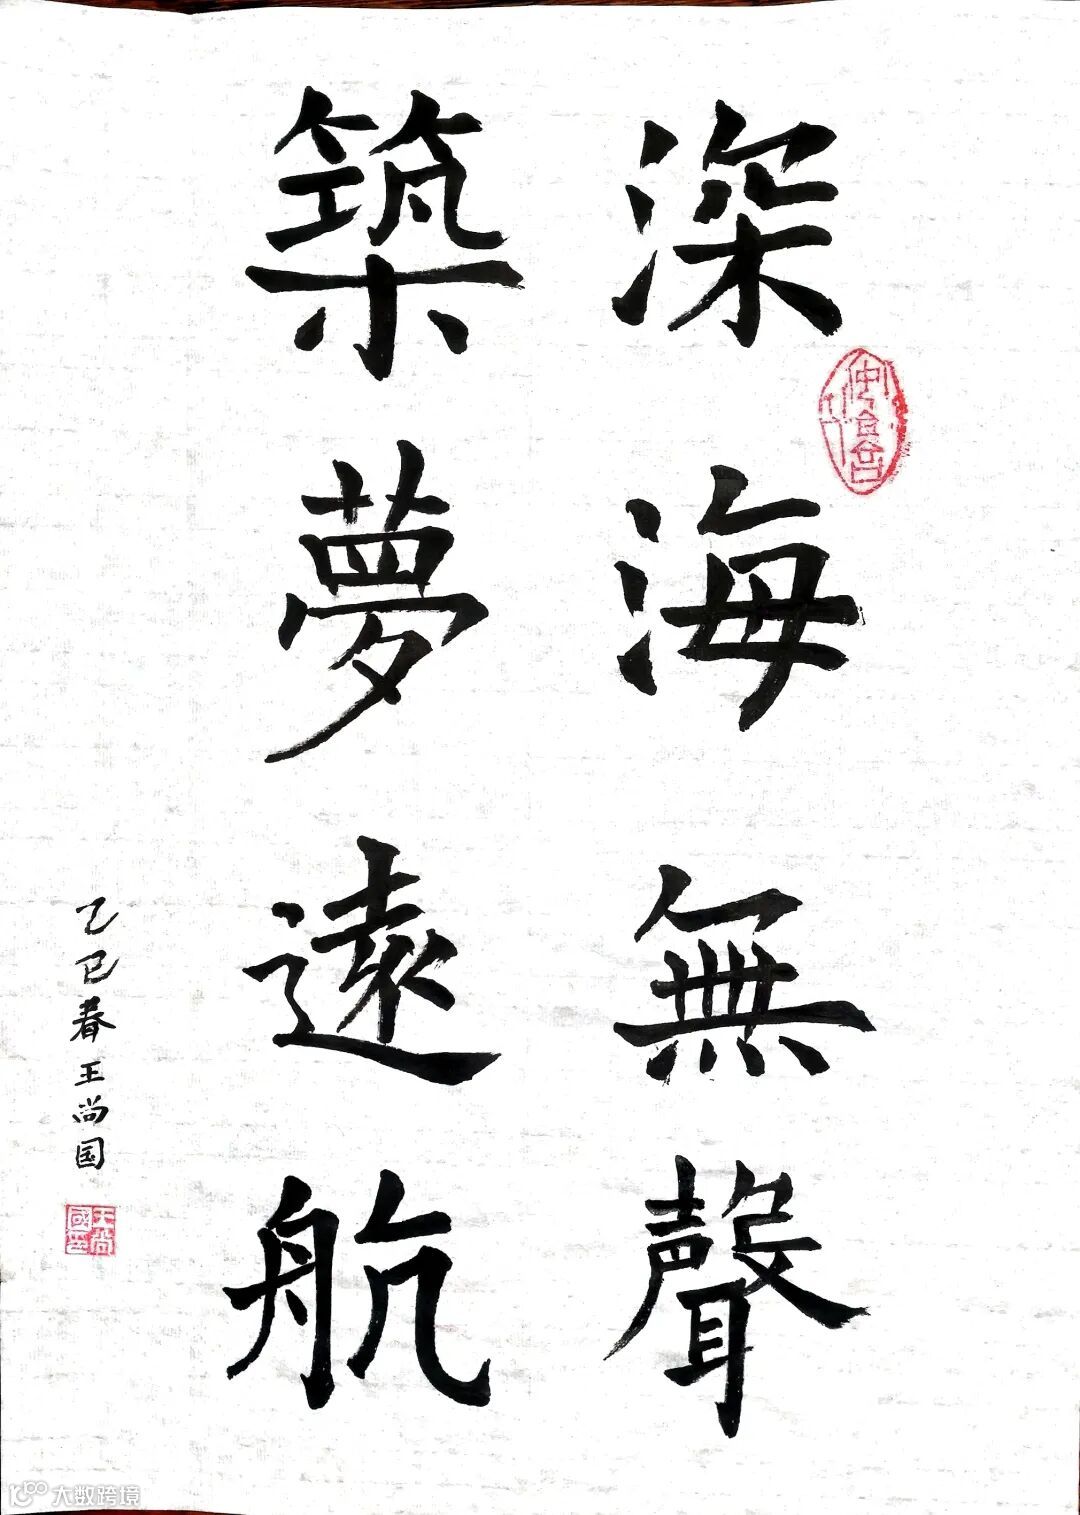 深海無聲
築夢遠航
乙巳春王尚国
王尚國印
大数跨境